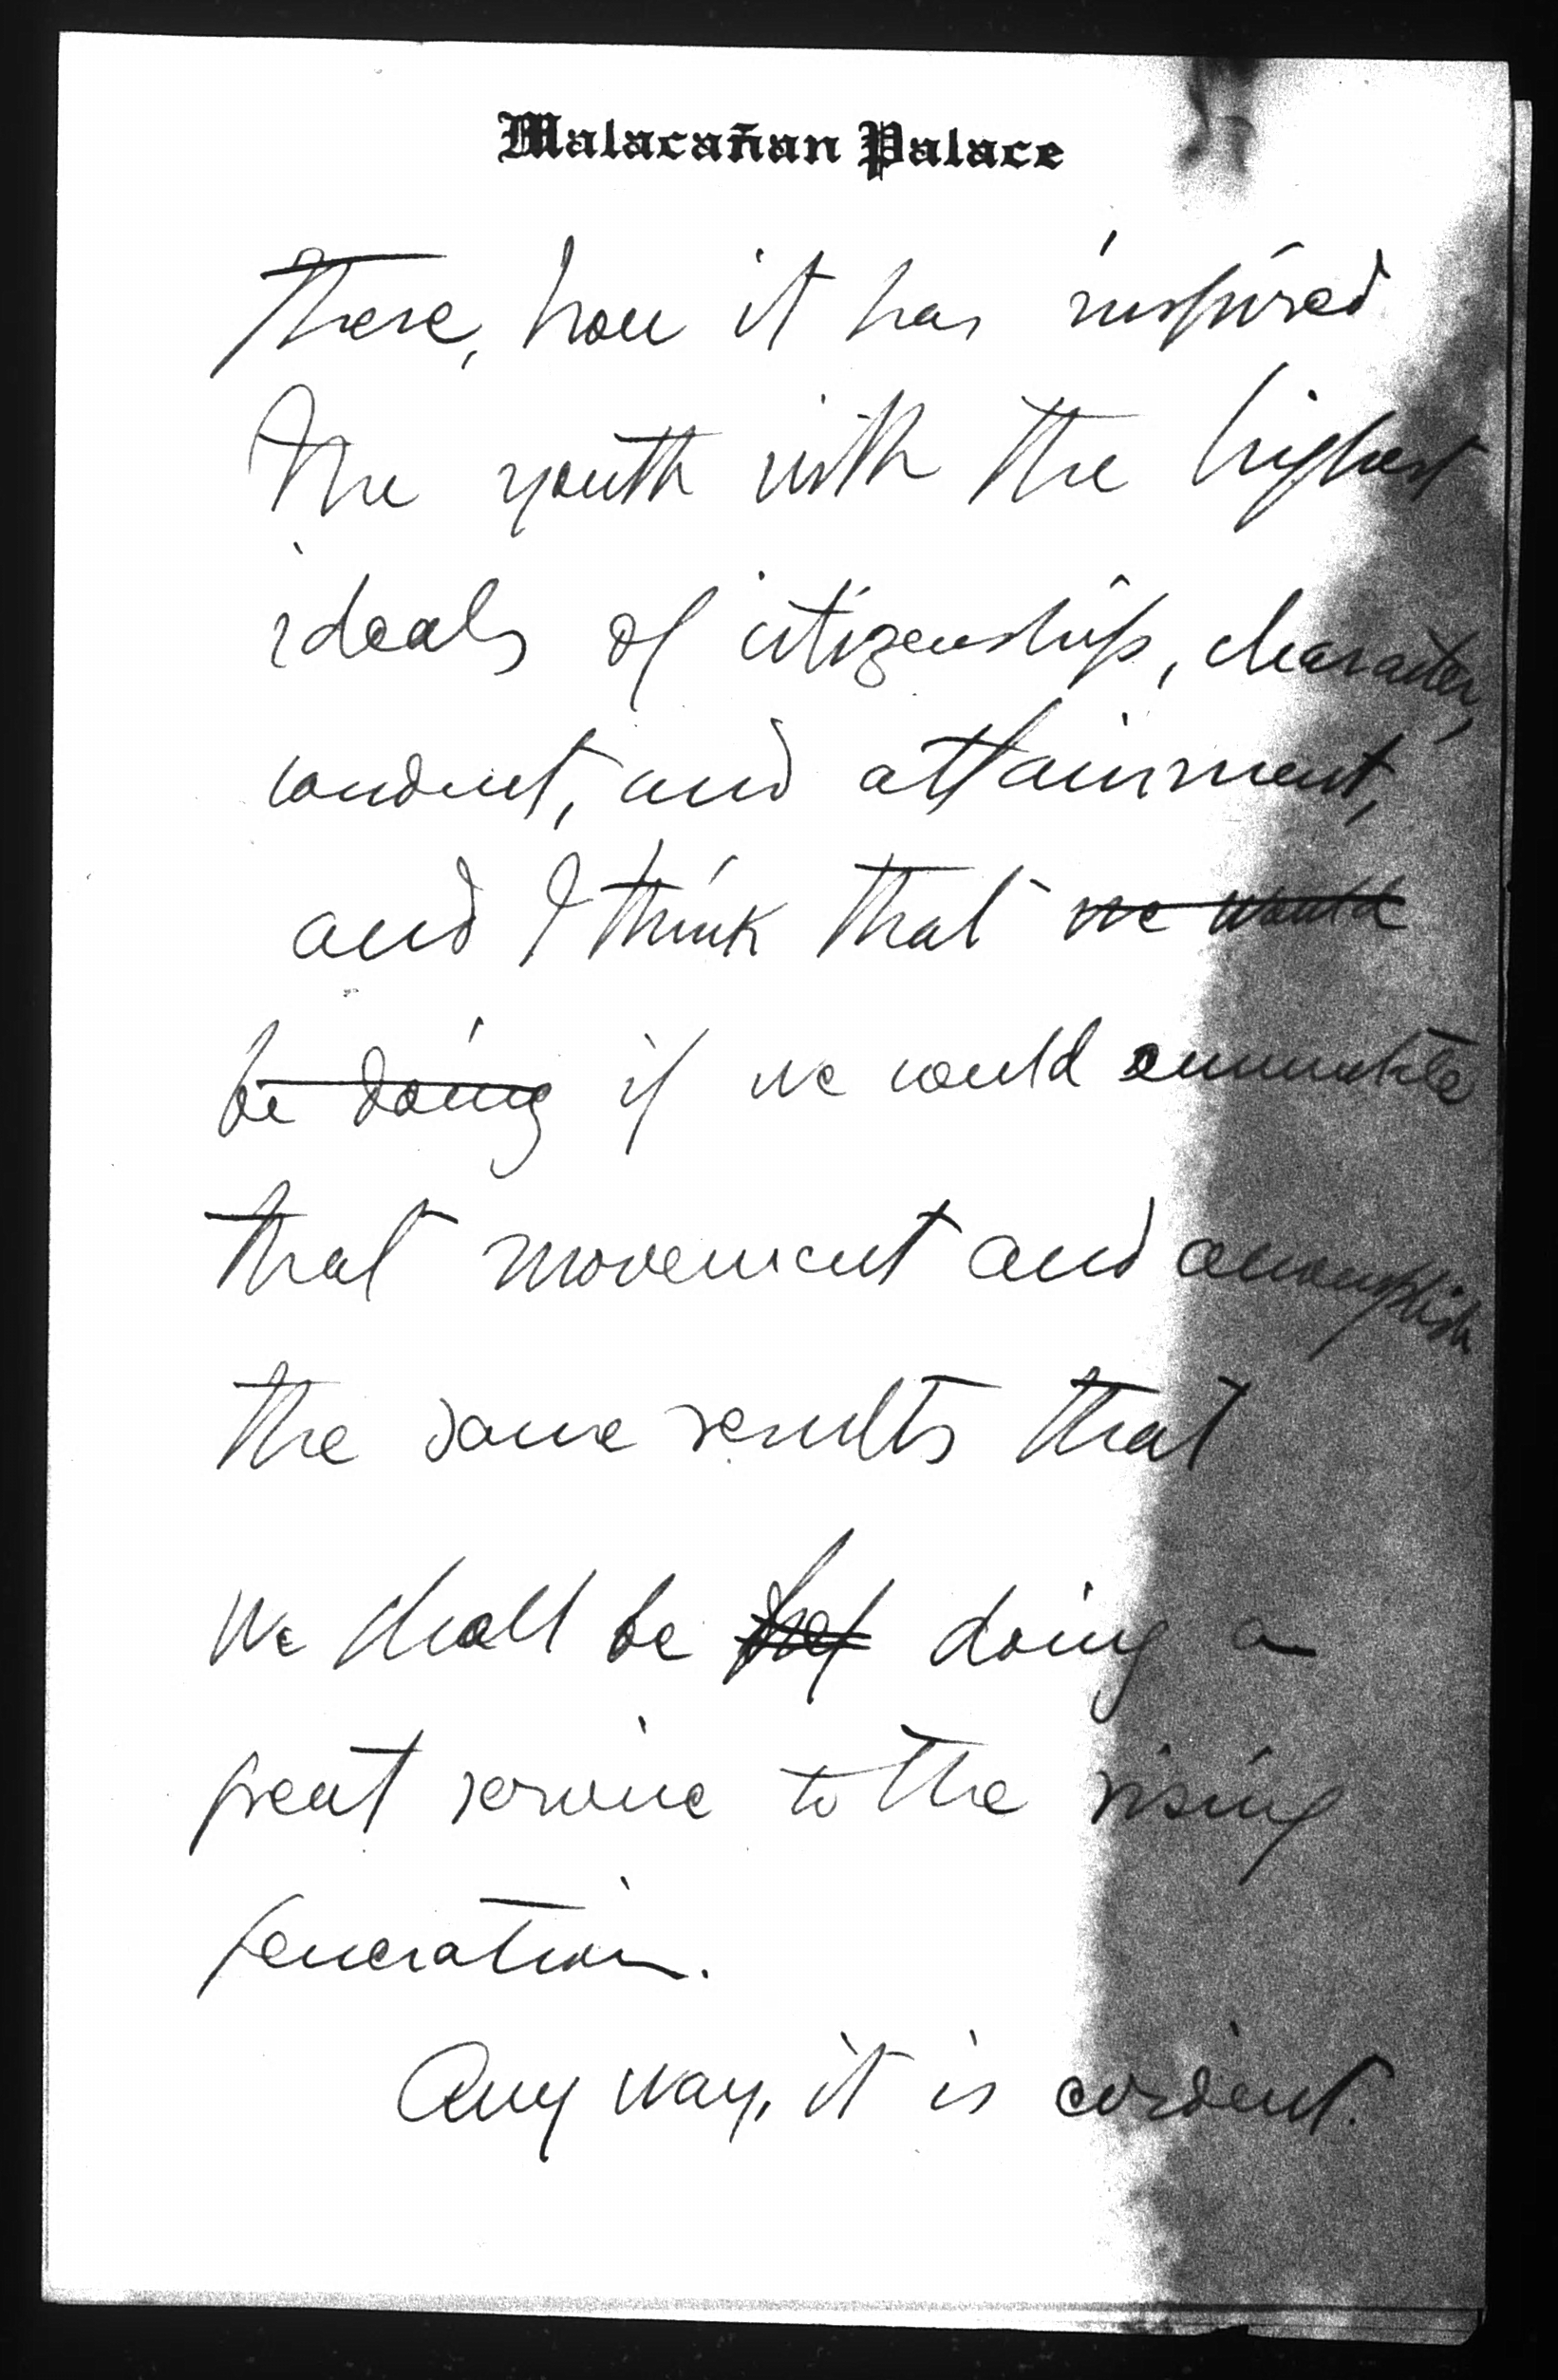 Malacañan Palace
there, how it has inspired
the youth with the highest
ideals of citizenship, character,
conduct, and attainment,
and I think that we would
be doing if we could
that movement and accomplish
the same results that
we shall be doing a
great service to the rising
generation.
Any way, it is evident.